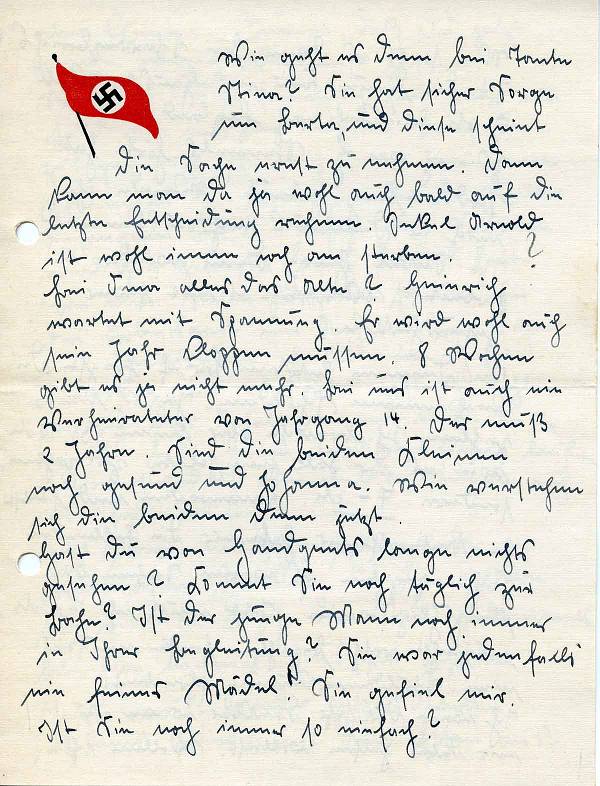 Wie geht es denn bei Tante
Stina? Sie hat sicher Sorge
um Berta, und diese scheint
die Sache ernst zu nehmen. Dann
kann man da ja wohl auch bald auf die
letzte Entscheidung rechnen. Onkel Arnold
ist wohl immer noch am sterben. ?
Bei Oma alles das alte? Heinrich
wartet mit Spannung. Er wird wohl auch
sein Jahr kloppen müssen. 8 Wochen
gibt es ja nicht mehr. Bei uns ist auch ein
Verheirateter von Jahrgang 14. Der muß
2 Jahre. Sind die beiden Kleinen
noch gesund und Johanna. Wie verstehen
sich die beiden denn jetzt.
Hast du von lange nichts
gesehen? Kommt Sie noch täglich zur
Ist der junge Mann noch immer
in Ihrer Begleitung? Sie war jedenfalls
ein feines Mädel! Sie gefiel mir.
Ist Sie noch immer so einfach?